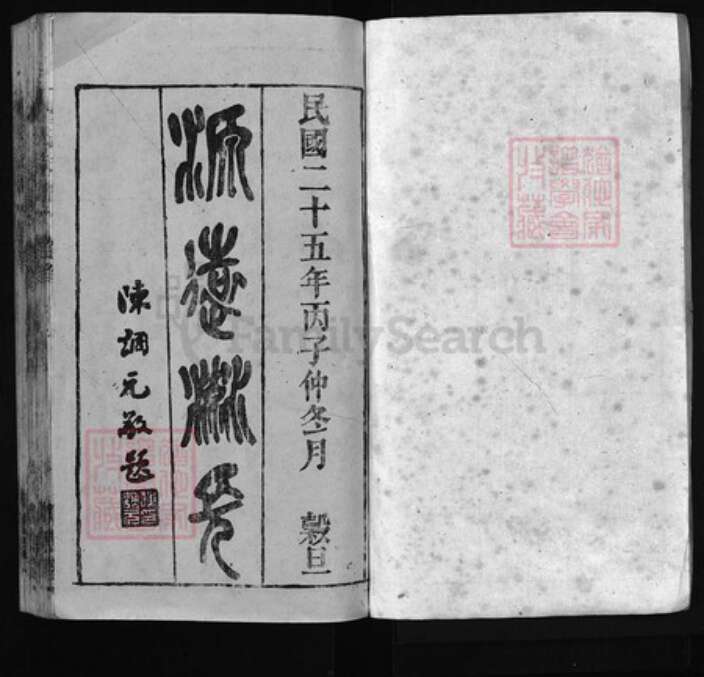 民國二十五年丙子仲冬月 穀旦
源遠流長
陳調元敬題
FamilySearch